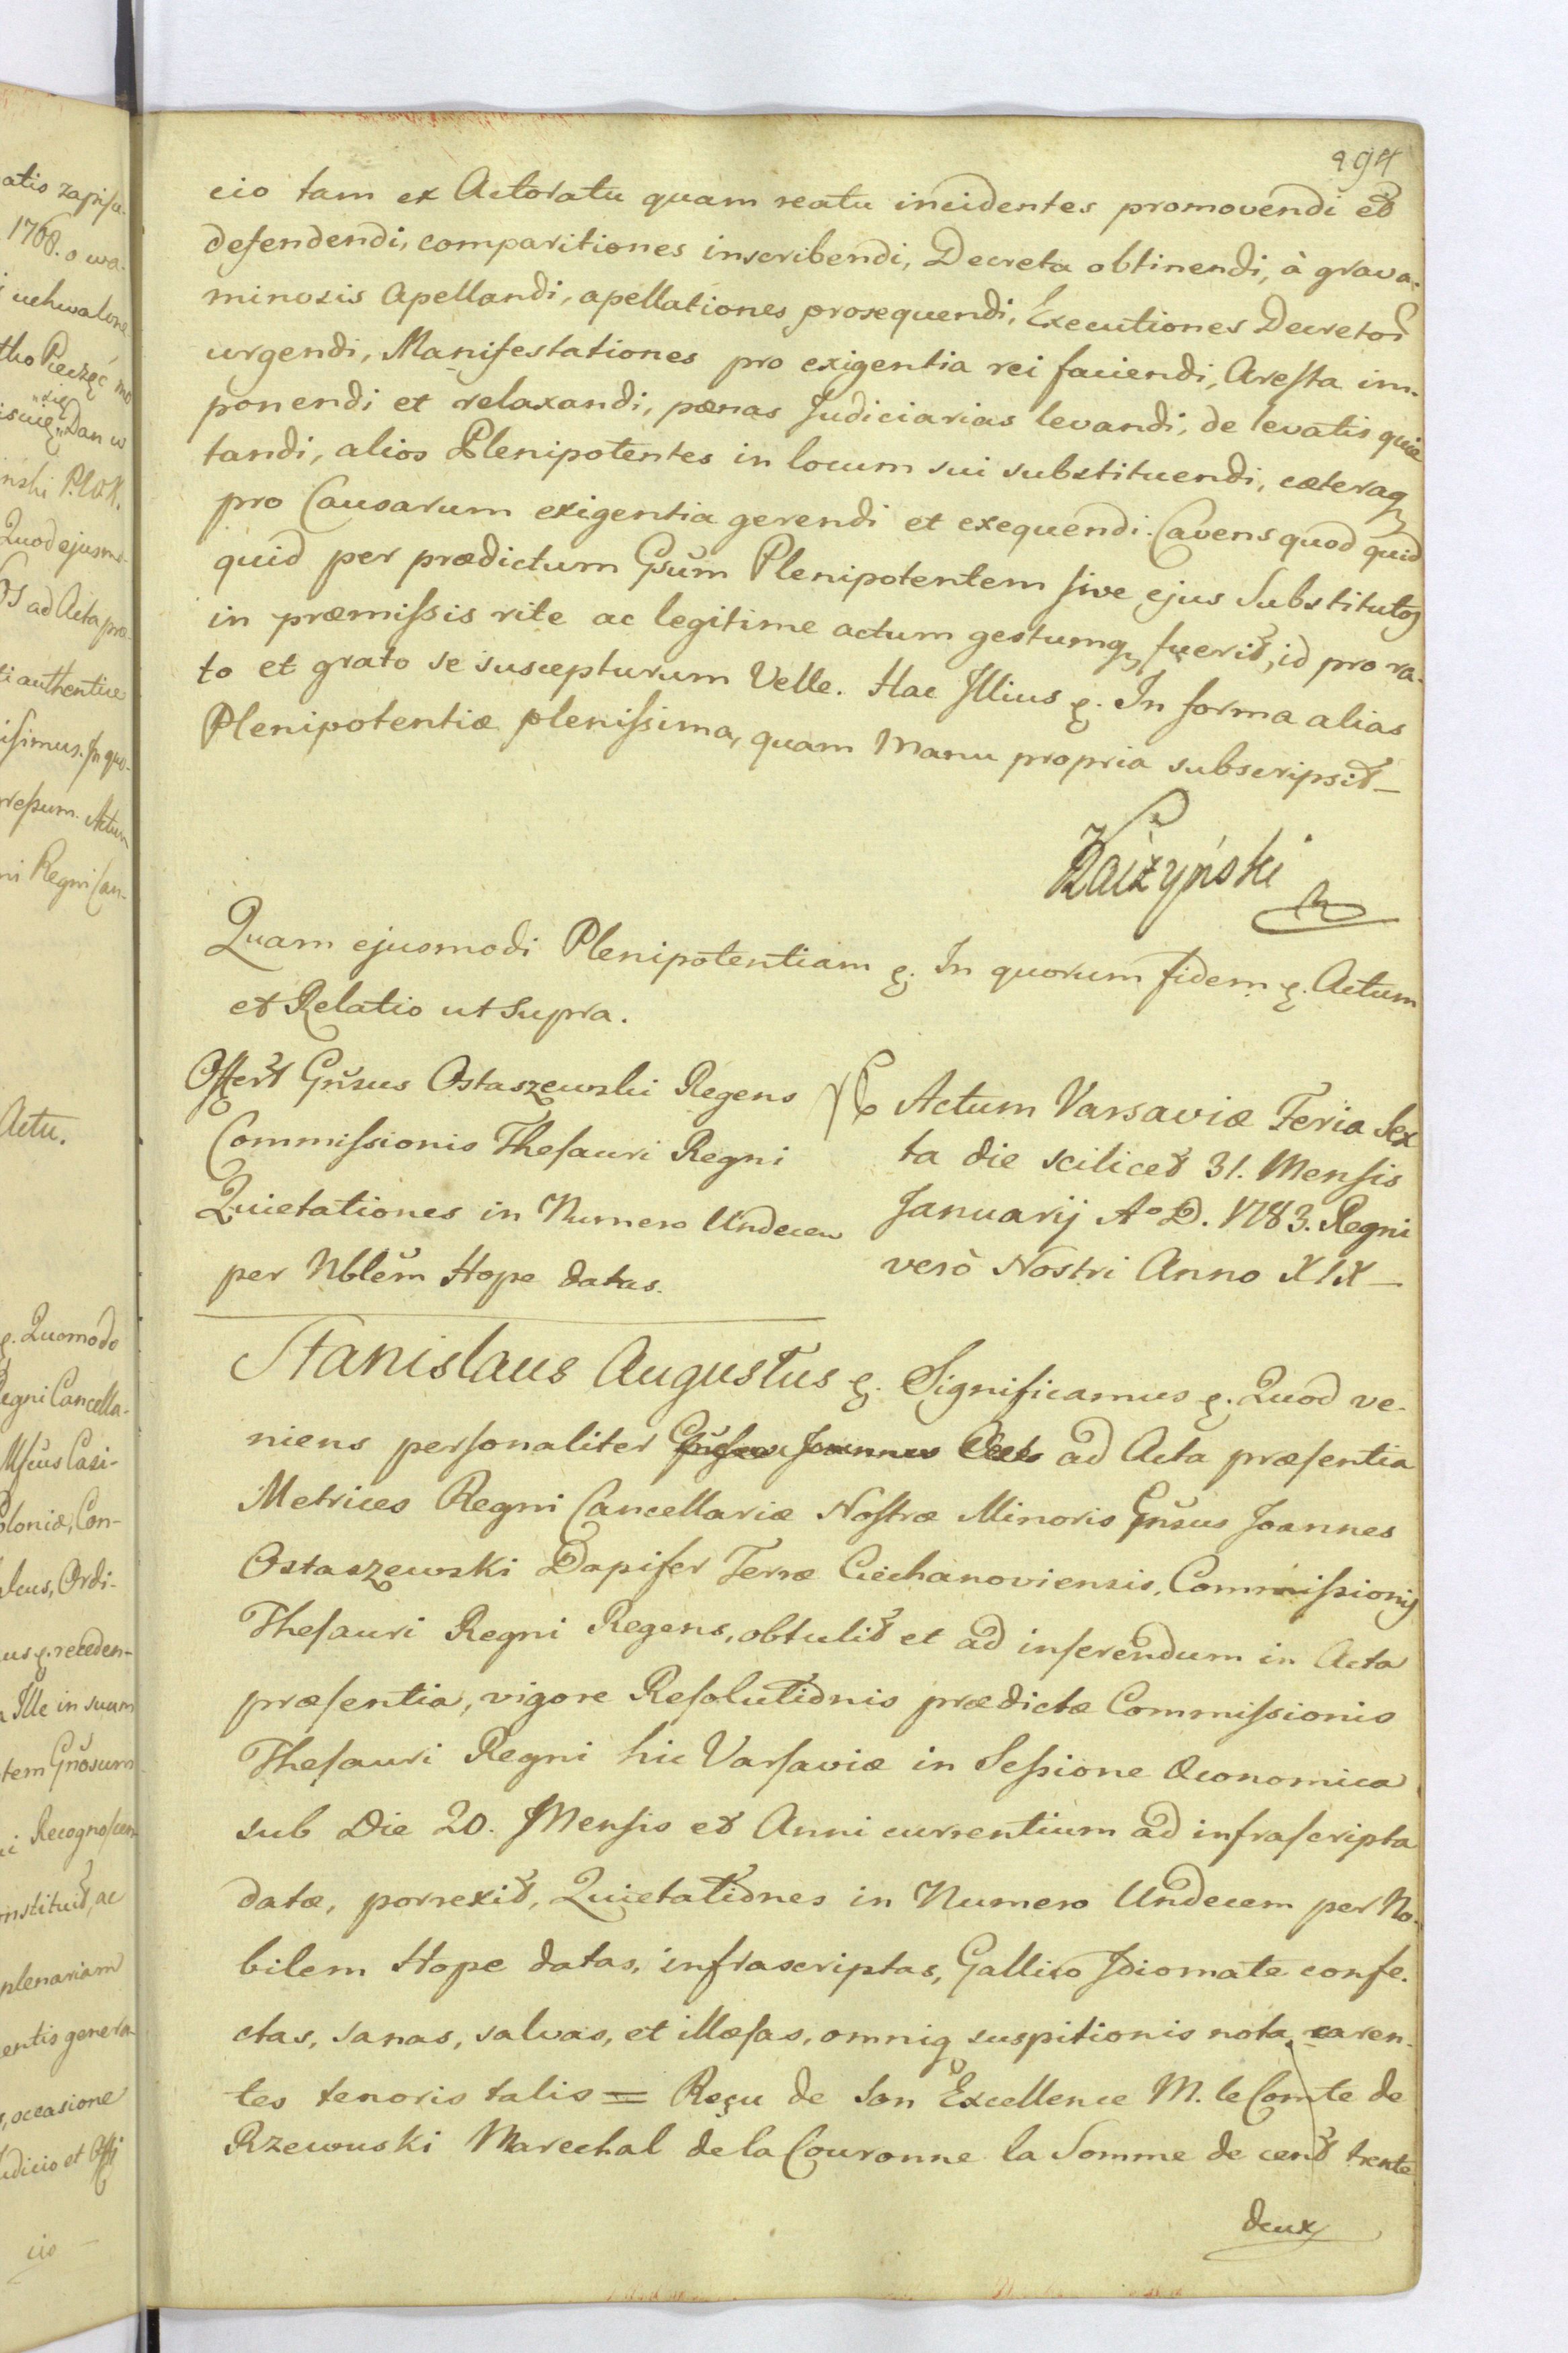 494
cio tam ex Actoratu quam reatu incidentes promovendi et
defendendi, comparitiones inscribendi, Decreta obtinendi, à grava-
minosis Apellandi, apellationes prosequendi, Executiones Decretor
urgendi, Manifestationes pro exigentia rei faciendi, Aresta im-
ponendi et relaxandi, pœnas Judiciarias levandi, de levatis quie
tandi, alios Plenipotentes in locum sui substituendi, cæteraq
pro Causarum exigentia gerendi et exequendi. Cavens quod quid
quid per prædictum Gsŭm Plenipotentem sive ejus Substitutos
in præmissis rite ac legitime actum gestumq fuerit, id pro ra-
to et grato se suscepturum Velle. Hac Illius ę. In forma alias
Plenipotentiæ plenissima, quam Manu propria subscripsit—
Quam ejusmodi Plenipotentiam ę. In quorum fidem ę. Actum
et Relatio ut Supra.
Offert Gnŭsus Ostaszewski Regens
Commissionis Thesauri Regni
Quietationes in Numero Undecem
per Nblĕm Hope datas.
Actum Varsaviæ Feria Sex
ta die scilicet 31. Mensis
Januarij Aº D. 1783. Regni
verò Nostri Anno XIX—
Stanislaus Augustus ę. Significamus ę. Quod ve-
niens personaliter ad Acta præsentia
Metrices Regni Cancellariæ Nostræ Minoris Gnŭsus Joannes
Ostaszewski Dapifer Terræ Ciechanoviensis, Commissionis
Thesauri Regni Regens, obtulit et ad inserendum in Acta
præsentia, vigore Resolutionis prædictæ Commissionis
Thesauri Regni hic Varsaviæ in Sessione Œconomica
sub Die 20. Mensis et Anni currentium ad infrascripta
datæ, porrexit, Quietationes in Numero Undecem per No-
bilem Hope datas, infrascriptas, Gallico Idiomate confe-
ctas, sanas, salvas, et illæsas, omniq suspitionis nota caren-
tes tenoris talis = Reçu de Son Excellence M. le Comte de
Rzewuski Marechal de la Couronne la Somme de cent trente
deux